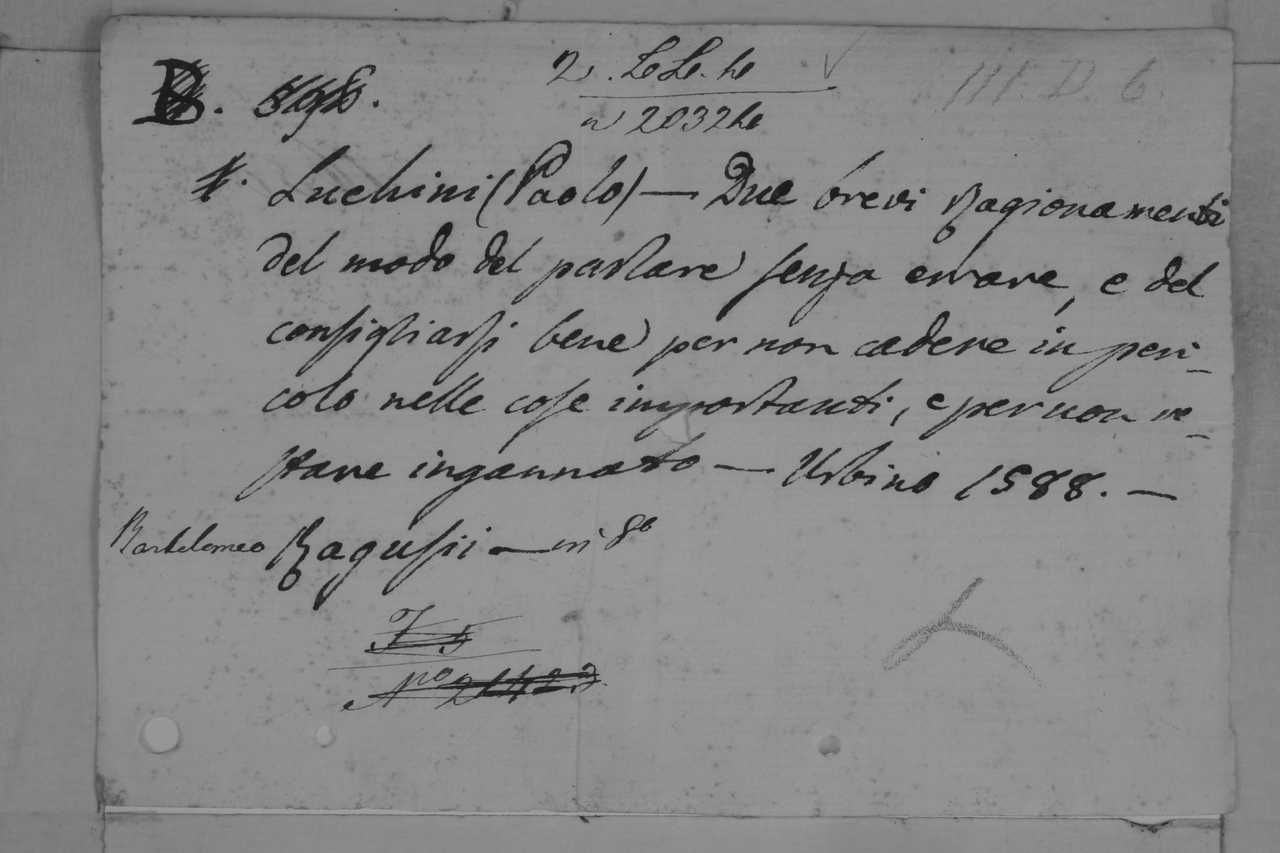 B. 398.
2. LeLe. he
n 2032he
III. D. 6.
1. Luchini (Paolo) — Due brevi Ragionamenti
del modo del parlare senza errare, e del
consigliarsi bene per non cadere in peri-
colo nelle cose importanti, e per non re-
stare ingannato — Urbino 1588. —
Bartolomeo Ragusii — in 8º
N.º 21423